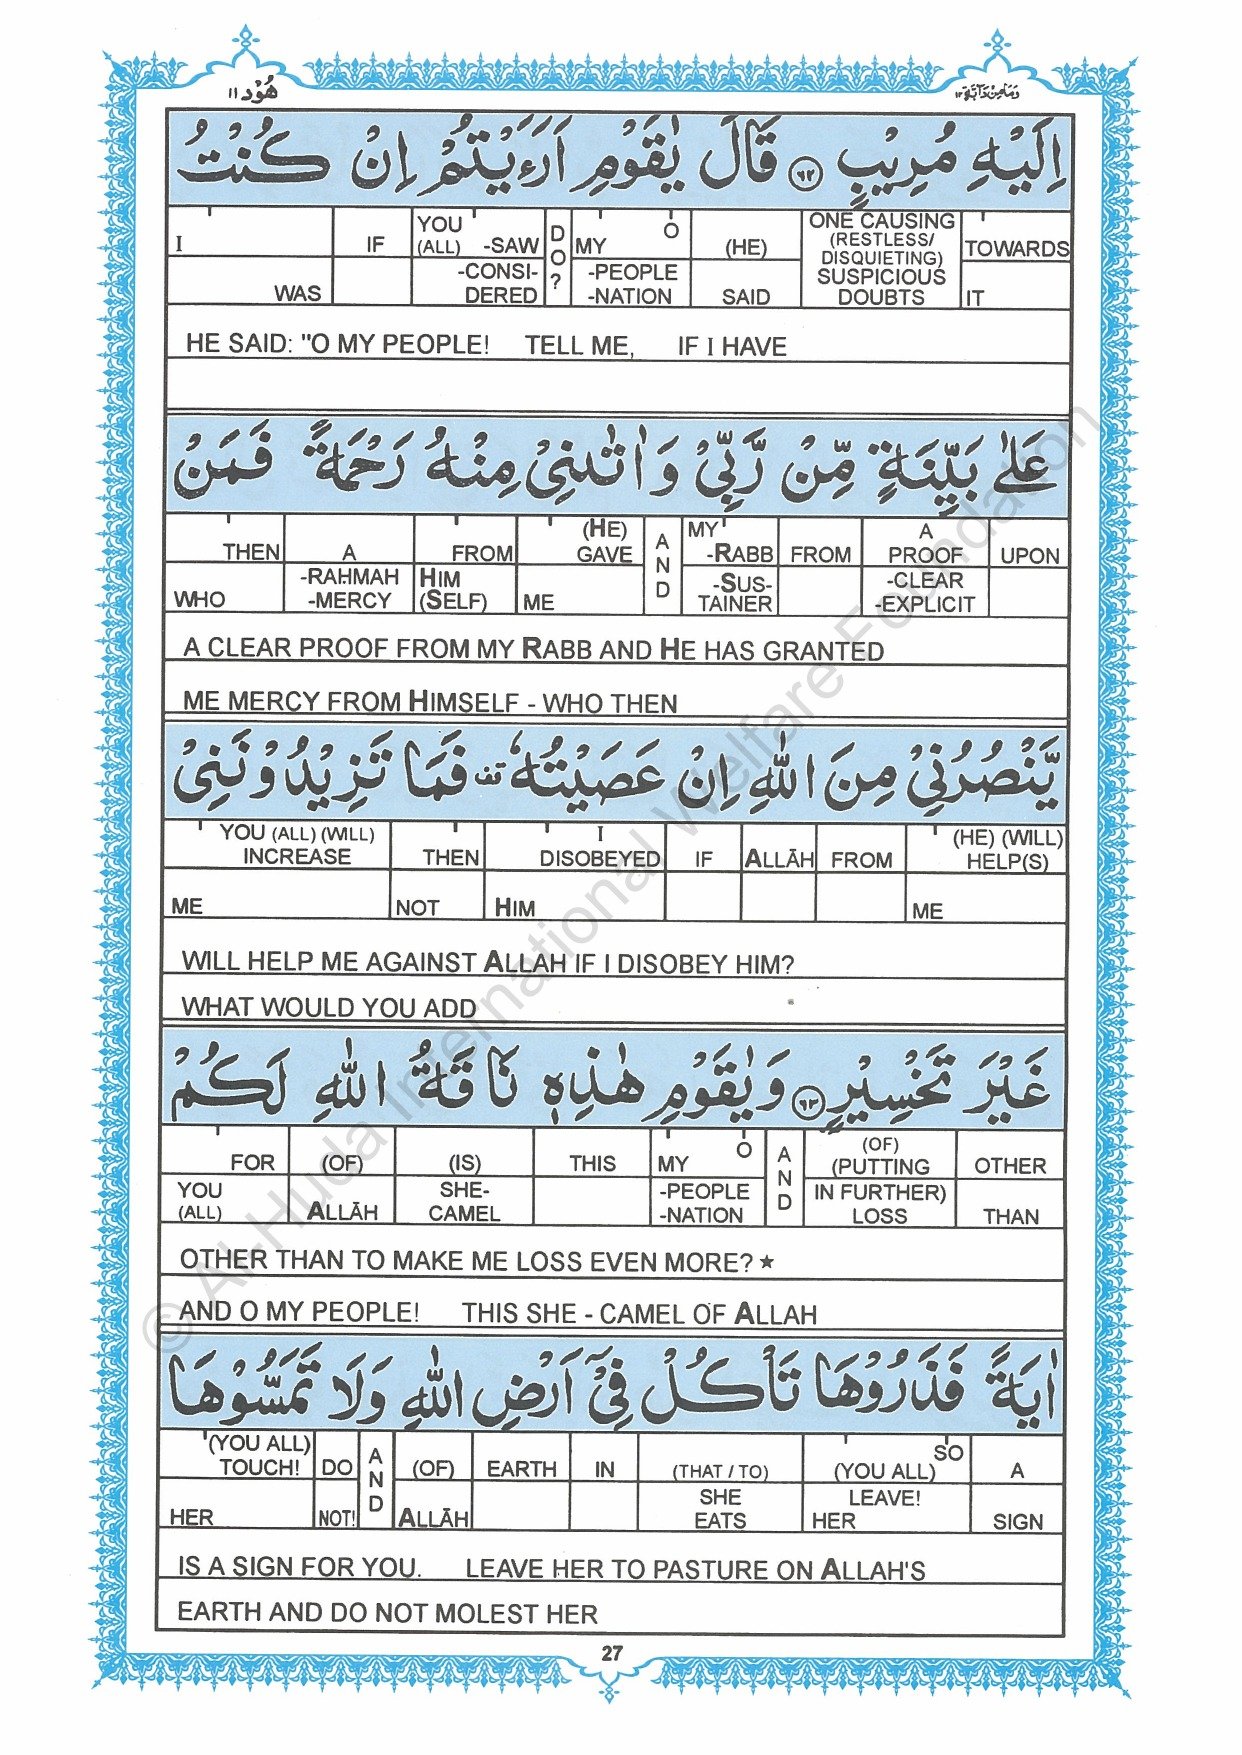 هُوْد ١١
وَمَا مِنْ دَآبَّةٍ ١٢
اِلَيْهِ مُرِيْبٍ ٦٢ قَالَ يٰقَوْمِ اَرَءَيْتُمْ اِنْ كُنْتُ
I IF YOU (ALL) -SAW DO? MY O (HE) ONE CAUSING (RESTLESS/ DISQUIETING) SUSPICIOUS DOUBTS TOWARDS
WAS -CONSI- DERED -PEOPLE -NATION SAID IT
HE SAID: "O MY PEOPLE! TELL ME, IF I HAVE
عَلٰى بَيِّنَةٍ مِّنْ رَّبِّيْ وَاٰتٰىنِيْ مِنْهُ رَحْمَةً فَمَنْ
THEN A FROM (HE) GAVE AND MY -RABB FROM A PROOF UPON
WHO -RAHMAH -MERCY HIM (SELF) ME -SUS- TAINER -CLEAR -EXPLICIT
A CLEAR PROOF FROM MY RABB AND HE HAS GRANTED
ME MERCY FROM HIMSELF - WHO THEN
يَّنْصُرُنِيْ مِنَ اللّٰهِ اِنْ عَصَيْتُهٗ قف فَمَا تَزِيْدُوْنَنِيْ
YOU (ALL) (WILL) INCREASE THEN I DISOBEYED IF ALLĀH FROM (HE) (WILL) HELP(S)
ME NOT HIM ME
WILL HELP ME AGAINST ALLAH IF I DISOBEY HIM?
WHAT WOULD YOU ADD
غَيْرَ تَخْسِيْرٍ ٦٣ وَيٰقَوْمِ هٰذِهٖ نَاقَةُ اللّٰهِ لَكُمْ
FOR (OF) (IS) THIS MY O AND (OF) (PUTTING OTHER
YOU (ALL) ALLĀH SHE- CAMEL -PEOPLE -NATION IN FURTHER) LOSS THAN
OTHER THAN TO MAKE ME LOSS EVEN MORE? ★
AND O MY PEOPLE! THIS SHE - CAMEL OF ALLAH
اٰيَةً فَذَرُوْهَا تَاْكُلْ فِيْٓ اَرْضِ اللّٰهِ وَلَا تَمَسُّوْهَا
(YOU ALL) TOUCH! DO AND (OF) EARTH IN (THAT / TO) SO (YOU ALL) A
HER NOT! ALLĀH SHE EATS LEAVE! HER SIGN
IS A SIGN FOR YOU. LEAVE HER TO PASTURE ON ALLAH'S
EARTH AND DO NOT MOLEST HER
27
© Al-Huda International Welfare Foundation